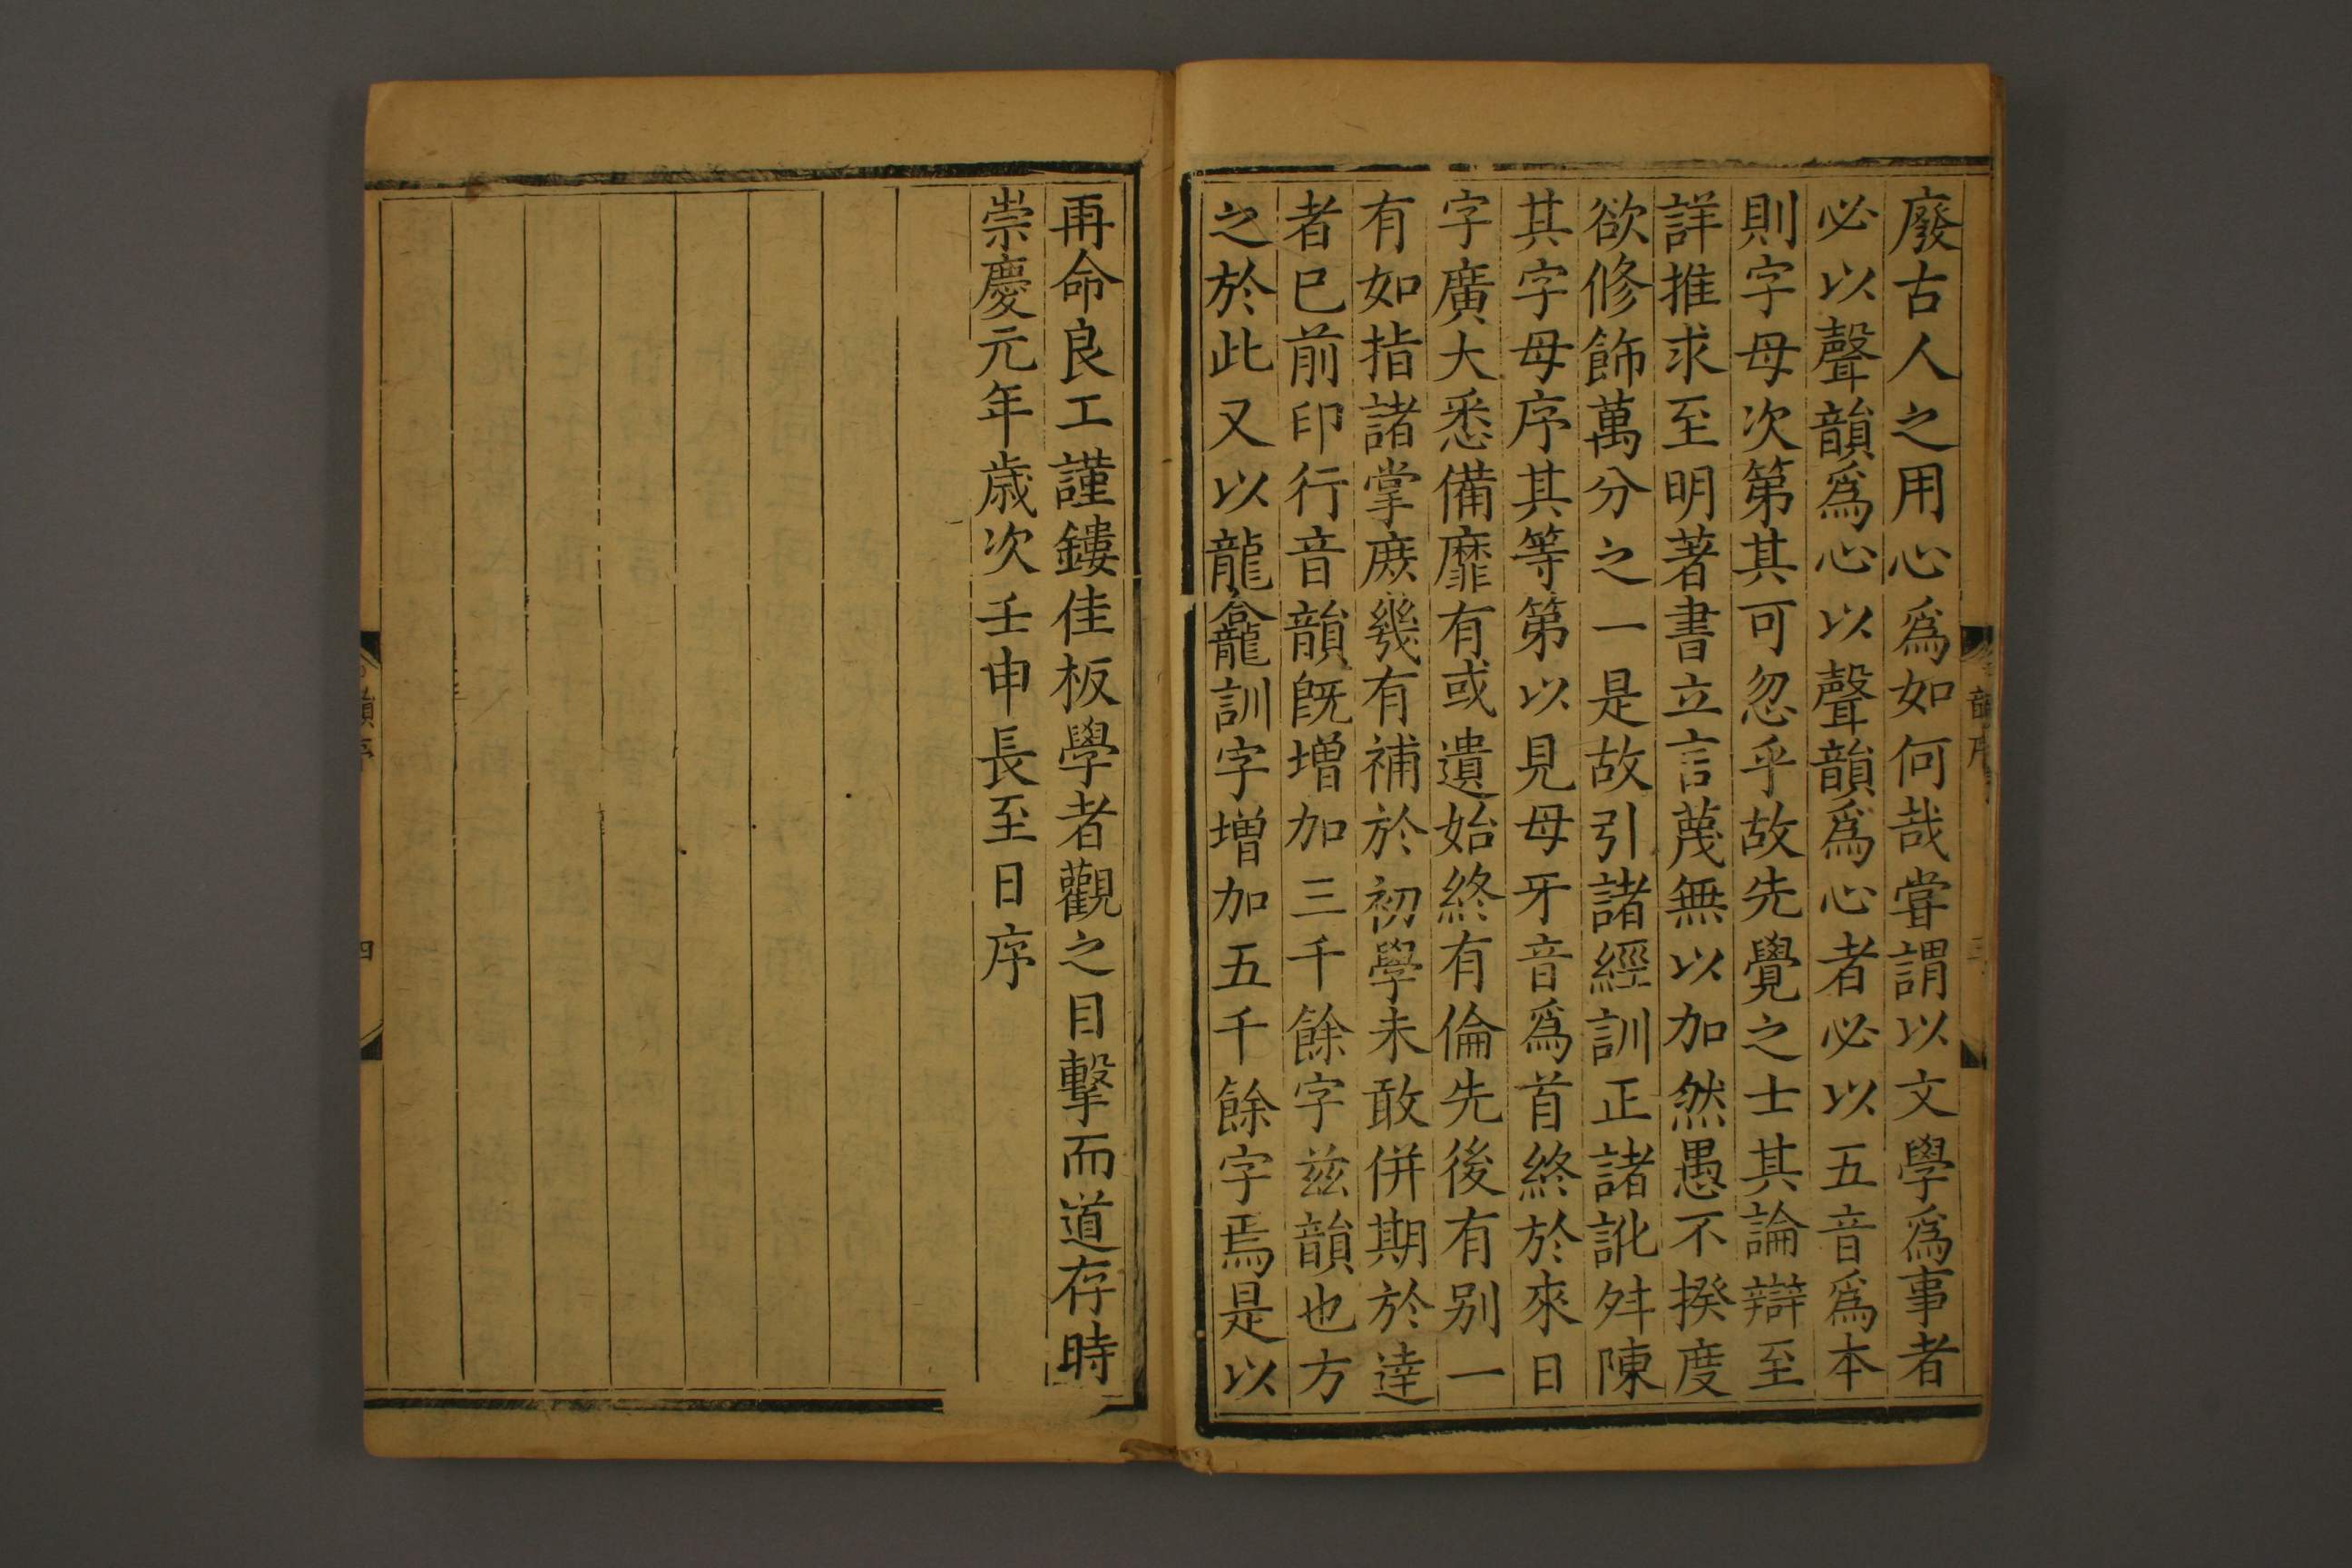 廢古人之用心爲如何哉甞謂以文學爲事者
必以聲韻爲心以聲韻爲心者必以五音爲本
則字母次第其可忽乎故先覺之士其論辯至
詳推求至明著書立言蔑無以加然愚不揆度
欲修飾萬分之一是故引諸經訓正諸訛舛陳
其字母序其等第以見母牙音爲首終於來日
字廣大悉備靡有或遺始終有倫先後有别一
有如指諸掌庻幾有補於初學未敢併期於達
者已前印行音韻既増加三千餘字兹韻也方
之於此又以龍龕訓字増加五千餘字焉是以
再命良工謹鏤佳板學者觀之目擊而道存時
崇慶元年歳次壬申長至日序
韻序
四